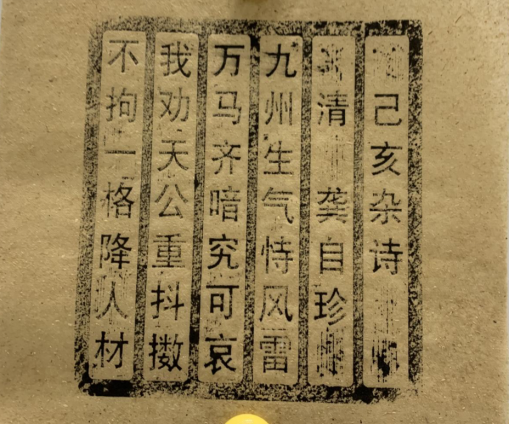 己亥杂诗
清 龚自珍
九州生气恃风雷
万马齐暗究可哀
我劝天公重抖擞
不拘一格降人材